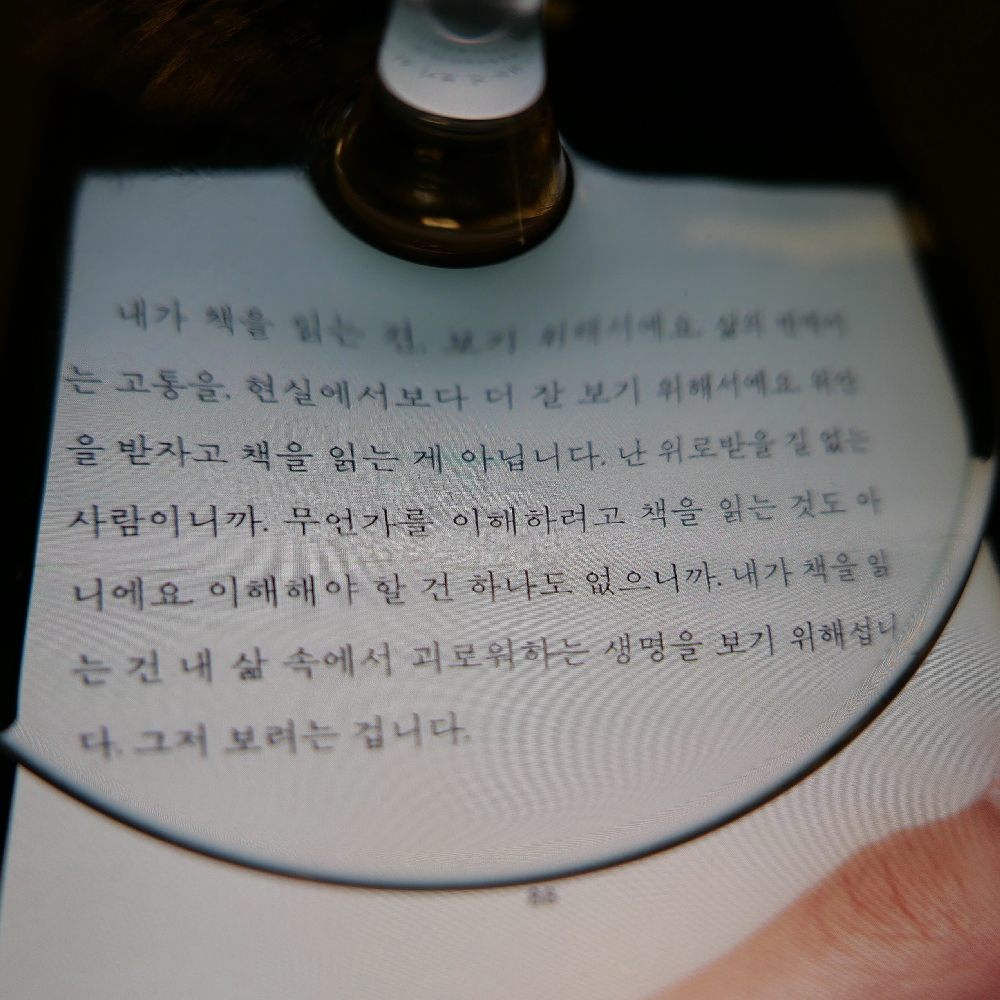 내가 책을 읽는 건, 보기 위해서예요. 삶의
는 고통을. 현실에서보다 더 잘 보기 위해서예요. 위안
을 받자고 책을 읽는 게 아닙니다. 난 위로받을 길 없는
사람이니까. 무언가를 이해하려고 책을 읽는 것도 아
니에요. 이해해야 할 건 하나도 없으니까. 내가 책을 읽
는 건 내 삶 속에서 괴로워하는 생명을 보기 위해섭니
다. 그저 보려는 겁니다.